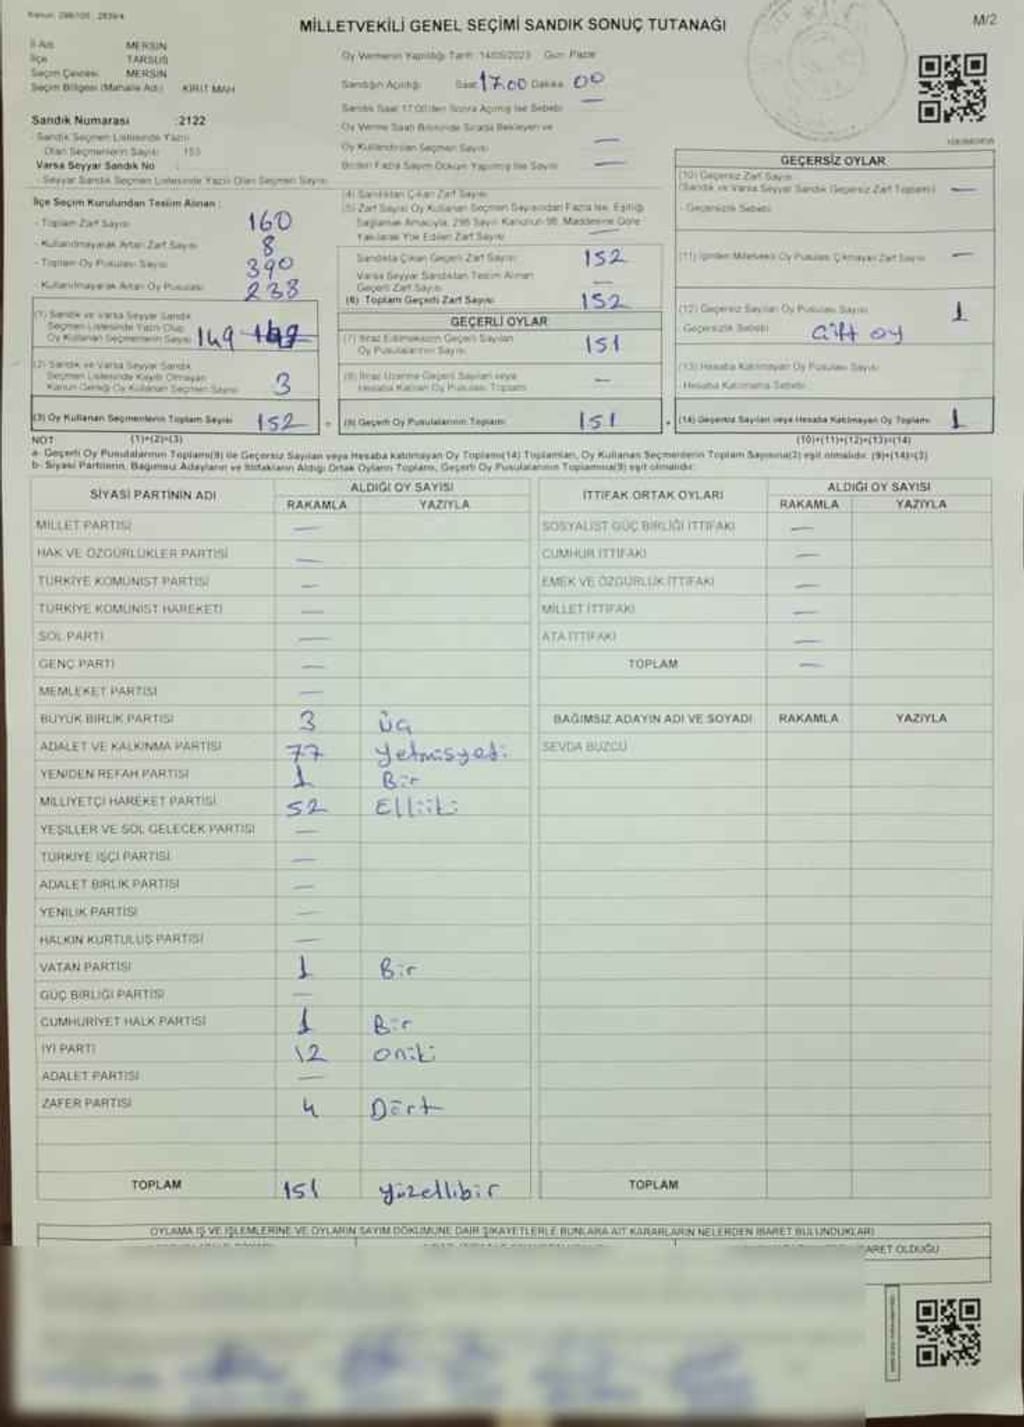 MİLLETVEKİLİ GENEL SEÇİMİ SANDIK SONUÇ TUTANAĞI
M/2
İl Adı MERSİN
İlçe TARSUS
Seçim Çevresi MERSİN
Seçim Bölgesi (Mahalle Adı) KIRIT MAH
Oy Vermenin Yapıldığı Tarih: 14/05/2023 Gün: Pazar
Sandığın Açılığı Saat 17.00 Dakika 00
Sandık Saat 17:00'den Sonra Açılmış İse Sebebi —
Oy Verme Saati Bitiminde Sırada Bekleyen ve
Oy Kullandırılan Seçmen Sayısı —
Birden Fazla Sayım Döküm Yapılmış İse Sayısı —
Sandık Numarası : 2122
- Sandık Seçmen Listesinde Yazılı
Olan Seçmenlerin Sayısı 153
Varsa Seyyar Sandık No
- Seyyar Sandık Seçmen Listesinde Yazılı Olan Seçmen Sayısı
İlçe Seçim Kurulundan Teslim Alınan :
- Toplam Zarf Sayısı 160
- Kullanılmayarak Artan Zarf Sayısı 8
- Toplam Oy Pusulası Sayısı 390
- Kullanılmayarak Artan Oy Pusulası 238
(1) Sandık ve varsa Seyyar Sandık
Seçmen Listesinde Yazılı Olup
Oy Kullanan Seçmenlerin Sayısı 149 149
(2) Sandık ve varsa Seyyar Sandık
Seçmen Listesinde Kayıtlı Olmayan
Kanun Gereği Oy Kullanan Seçmen Sayısı 3
(3) Oy Kullanan Seçmenlerin Toplam Sayısı 152
(4) Sandıktan Çıkan Zarf Sayısı
(5) Zarf Sayısı Oy Kullanan Seçmen Sayısından Fazla İse, Eşitliği
Sağlamak Amacıyla, 298 Sayılı Kanunun 98. Maddesine Göre
Yakılarak Yok Edilen Zarf Sayısı —
Sandıkta Çıkan Geçerli Zarf Sayısı 152
Varsa Seyyar Sandıktan Teslim Alınan
Geçerli Zarf Sayısı —
(6) Toplam Geçerli Zarf Sayısı 152
GEÇERLİ OYLAR
(7) İtiraz Edilmeksizin Geçerli Sayılan
Oy Pusulalarının Sayısı 151
(8) İtiraz Üzerine Geçerli Sayılan veya
Hesaba Katılan Oy Pusulası Toplamı —
(9) Geçerli Oy Pusulalarının Toplamı 151
GEÇERSİZ OYLAR
(10) Geçersiz Zarf Sayısı
(Sandık ve Varsa Seyyar Sandık Geçersiz Zarf Toplamı) —
- Geçersizlik Sebebi
(11) İçinden Milletvekili Oy Pusulası Çıkmayan Zarf Sayısı —
(12) Geçersiz Sayılan Oy Pusulası Sayısı 1
Geçersizlik Sebebi Çift oy
(13) Hesaba Katılmayan Oy Pusulası Sayısı
- Hesaba Katılmama Sebebi
(14) Geçersiz Sayılan veya Hesaba Katılmayan Oy Toplamı 1
NOT (1)+(2)=(3) (10)+(11)+(12)+(13)=(14)
a- Geçerli Oy Pusulalarının Toplamı(9) ile Geçersiz Sayılan veya Hesaba Katılmayan Oy Toplamı(14) Toplamları, Oy Kullanan Seçmenlerin Toplam Sayısına(3) eşit olmalıdır. (9)+(14)=(3)
b- Siyasi Partilerin, Bağımsız Adayların ve İttifakların Aldığı Ortak Oyların Toplamı, Geçerli Oy Pusulalarının Toplamına(9) eşit olmalıdır.
SİYASİ PARTİNİN ADI ALDIĞI OY SAYISI
RAKAMLA YAZIYLA
MİLLET PARTİSİ —
HAK VE ÖZGÜRLÜKLER PARTİSİ —
TÜRKİYE KOMÜNİST PARTİSİ —
TÜRKİYE KOMÜNİST HAREKETİ —
SOL PARTİ —
GENÇ PARTİ —
MEMLEKET PARTİSİ —
BÜYÜK BİRLİK PARTİSİ 3 üç
ADALET VE KALKINMA PARTİSİ 77 Yetmişyedi
YENİDEN REFAH PARTİSİ 1 Bir
MİLLİYETÇİ HAREKET PARTİSİ 52 Elliiki
YEŞİLLER VE SOL GELECEK PARTİSİ —
TÜRKİYE İŞÇİ PARTİSİ —
ADALET BİRLİK PARTİSİ —
YENİLİK PARTİSİ —
HALKIN KURTULUŞ PARTİSİ —
VATAN PARTİSİ 1 Bir
GÜÇ BİRLİĞİ PARTİSİ —
CUMHURİYET HALK PARTİSİ 1 Bir
İYİ PARTİ 12 oniki
ADALET PARTİSİ —
ZAFER PARTİSİ 4 Dört
TOPLAM 151 yüzellibir
İTTİFAK ORTAK OYLARI ALDIĞI OY SAYISI
RAKAMLA YAZIYLA
SOSYALİST GÜÇ BİRLİĞİ İTTİFAKI —
CUMHUR İTTİFAKI —
EMEK VE ÖZGÜRLÜK İTTİFAKI —
MİLLET İTTİFAKI —
ATA İTTİFAKI —
TOPLAM —
BAĞIMSIZ ADAYIN ADI VE SOYADI RAKAMLA YAZIYLA
SEVDA BUZCU
TOPLAM
OYLAMA İŞ VE İŞLEMLERİNE VE OYLARIN SAYIM DÖKÜMÜNE DAİR ŞİKAYETLERLE BUNLARA AİT KARARLARIN NELERDEN İBARET BULUNDUKLARI
ARET OLDUĞU